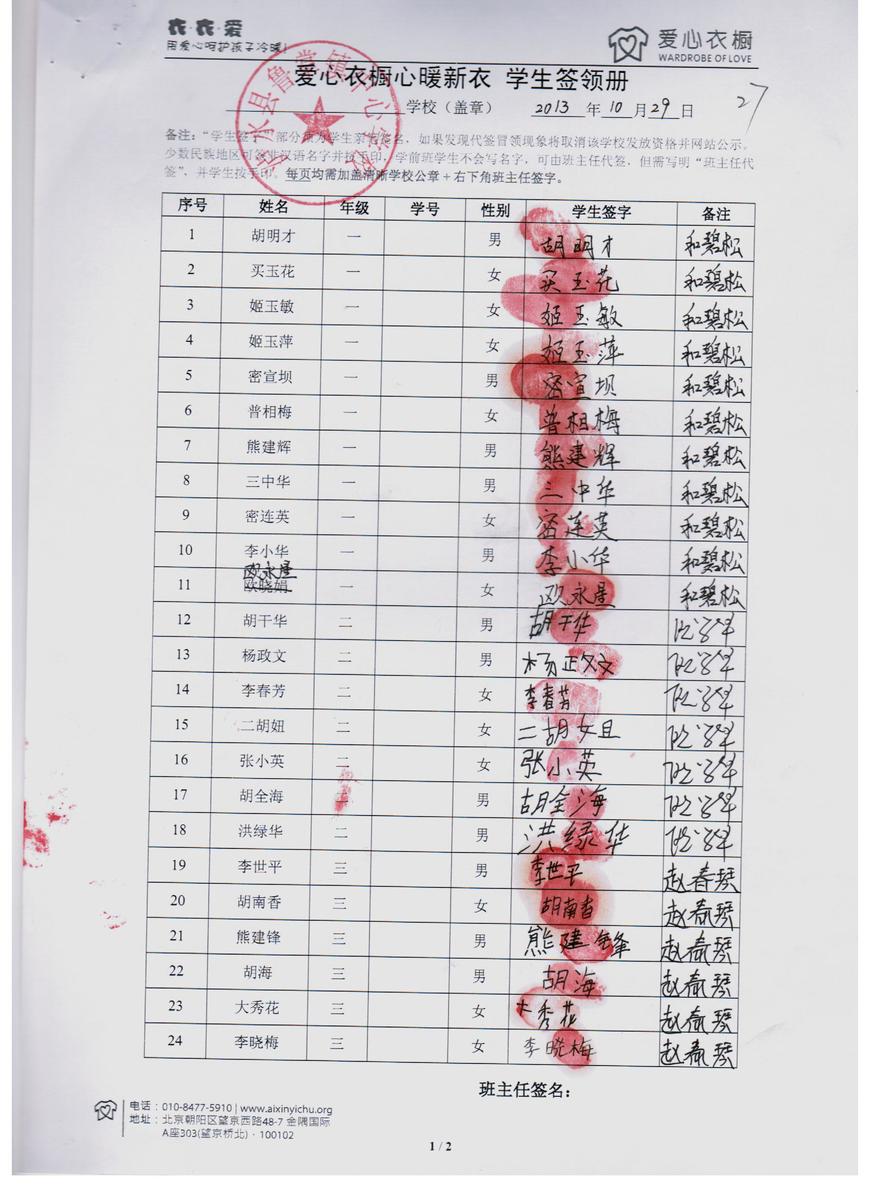 衣·衣·爱
用爱心呵护孩子冷暖！
爱心衣橱
WARDROBE OF LOVE
爱心衣橱心暖新衣 学生签领册
27
学校（盖章） 2013 年 10 月 29 日
备注：“学生签字”部分须为学生亲笔签名，如果发现代签冒领现象将取消该学校发放资格并网站公示。
少数民族地区可签非汉语名字并按手印，学前班学生不会写名字，可由班主任代签，但需写明“班主任代
签”，并学生按手印。每页均需加盖清晰学校公章+右下角班主任签字。
序号 姓名 年级 学号 性别 学生签字 备注
1 胡明才 一 男 胡明才 和碧松
2 买玉花 一 女 买玉花 和碧松
3 姬玉敏 一 女 姬玉敏 和碧松
4 姬玉萍 一 女 姬玉萍 和碧松
5 密宣坝 一 男 密宣坝 和碧松
6 普相梅 一 女 普相梅 和碧松
7 熊建辉 一 男 熊建辉 和碧松
8 三中华 一 男 三中华 和碧松
9 密连英 一 女 密莲英 和碧松
10 李小华 一 男 李小华 和碧松
欧永星
11 欧晓娟 一 女 欧永星 和碧松
12 胡干华 二 男 胡干华
13 杨政文 二 男 杨政文
14 李春芳 二 女 李春芳
15 二胡妞 二 女 二胡妞
16 张小英 二 女 张小英
17 胡全海 二 男 胡全海
18 洪绿华 二 男 洪绿华
19 李世平 三 男 李世平 赵春琴
20 胡南香 三 女 胡南香 赵春琴
21 熊建锋 三 男 熊建锋 赵春琴
22 胡海 三 男 胡海 赵春琴
23 大秀花 三 女 大秀花 赵春琴
24 李晓梅 三 女 李晓梅 赵春琴
班主任签名：
电话：010-8477-5910 | www.aixinyichu.org
地址：北京朝阳区望京西路48-7 金隅国际
A座303(望京桥北)·100102
1 / 2